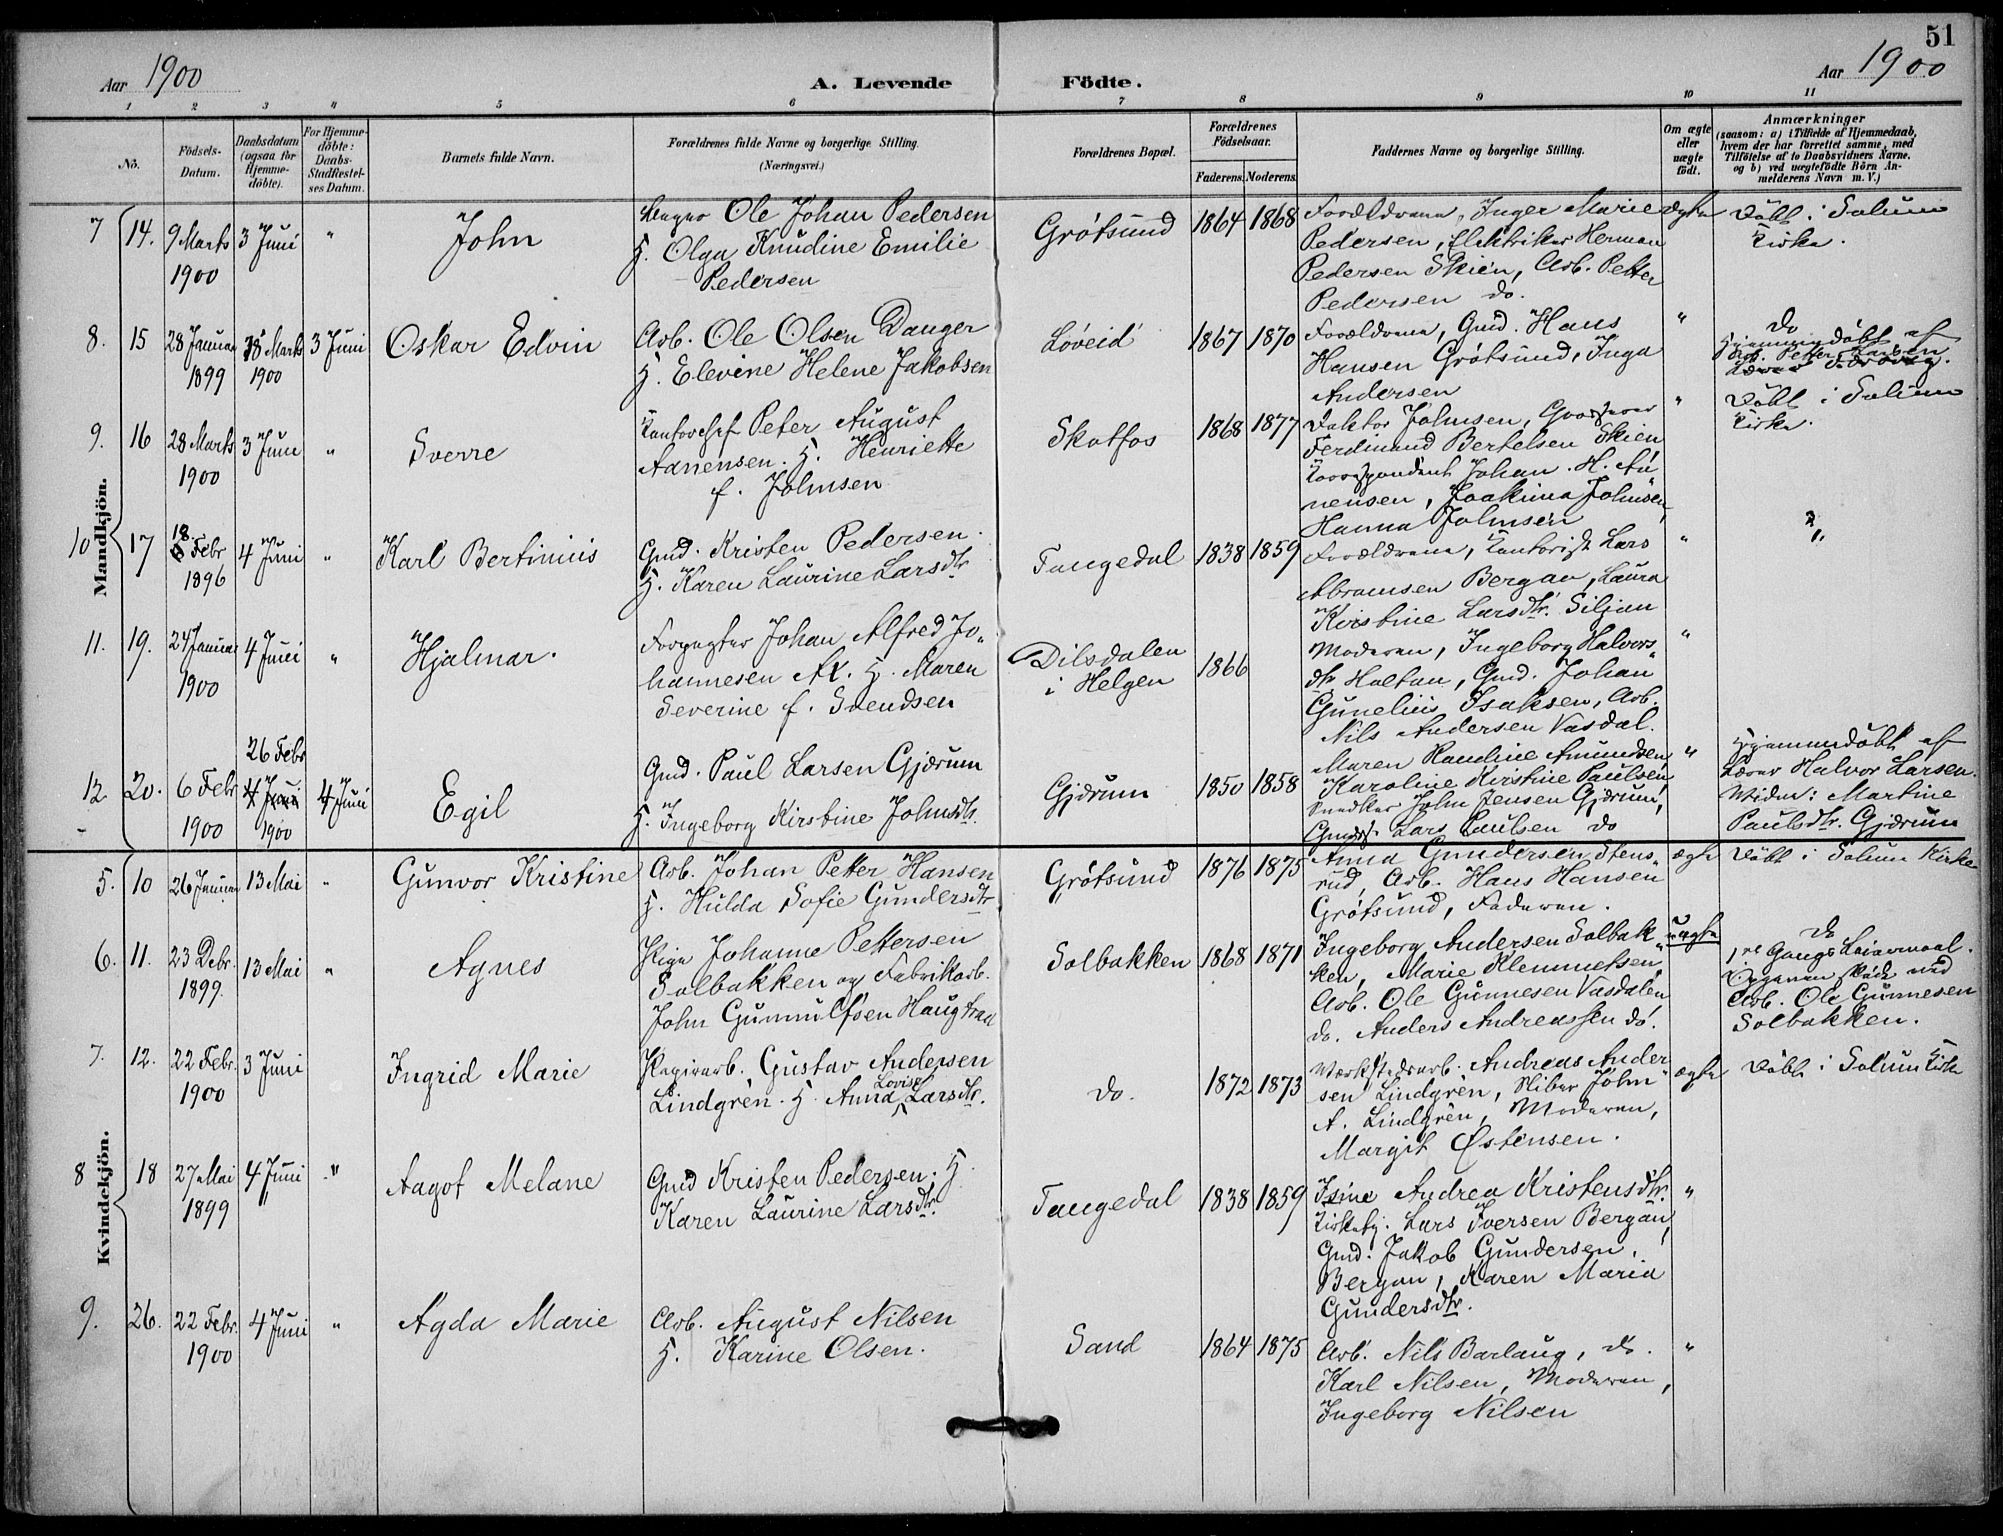 51
Aar 1900
A. Levende Födte.
Aar 1900
1 2 3 4 5 6 7 8 9 10 11
No.
Födsels-Datum.
Daabsdatum (ogsaa for Hjemmedöbte).
For Hjemmedöbte: Daabs-Stadfæstelses Datum.
Barnets fulde Navn.
Forældrenes fulde Navne og borgerlige Stilling.
(Næringsvei.)
Forældrenes Bopæl.
Forældrenes Födselsaar.
Faderens. Moderens.
Faddernes Navne og borgerlige Stilling.
Om ægte eller uægte födt.
Anmærkninger
(saasom: a) i Tilfælde af Hjemmedaab, hvem der har forrettet samme, med Tilföielse af to Daabsvidners Navne, og b) ved uægtefödte Börn Anmelderens Navn m. V.)
Mandkjön.
7 14. 9 Marts 1900 3 Juni "
John
Ole Johan Pedersen
H. Olga Knudine Emilie
Pedersen
Grótsund 1864 1868
Forældrene, Inger Marie
Pedersen, Elektriker Herman
Pedersen Skien, Arb. Petter
Pedersen do.
ægte
Döbt i Solum
Kirke.
8. 15 28 Januar 1899 18 Marts 1900 3 Juni
Oskar Edvin
Arb. Ole Olsen Danger
H. Elevine Helene Jakobsen
Løveid 1867 1870
Forældrene, Gmd. Hans
Hansen Grótsund, Inga
Andersen
"
Do
Hjemmedöbt af
Arb. Petter Larsen
9. 16 28 Marts 1900 3 Juni "
Sverre
Kontorchef Peter August
Aanensen. H. Henriette
f. Johnsen
Skotfos 1868 1877
Faktor Johnsen, Grosserer
Ferdinand Bertelsen Skien
Korrespondent Johan. H. Aa
nensen, Joakima Johnsen,
Hanna Johnsen
"
Döbt i Solum
Kirke.
10 17 18 Febr 1896 4 Juni "
Karl Bertinius
Gmd. Kristen Pedersen.
H. Karen Laurine Larsdtr
Tangedal 1838 1859
Forældrene, Kontorist Lars
Abramsen Bergan, Laura
Kirstine Larsdtr. Siljan
"
11. 19. 24 Januar 1900 4 Juni "
Hjalmar.
Forpagter Johan Alfred Jo-
hannesen H. Maren
Severine f. Svendsen
Dilsdalen
i Helgen
1866
Moderen, Ingeborg Halvors-
dtr. Holtan, Gmd. Johan
Gunelius Isaksen, Arb.
Nils Andersen Vasdal.
"
12 20. 6 Febr 1900 26 Febr 4 Juni 1900 4 Juni
Egil
Gmd. Paul Larsen Gjærum
H. Ingeborg Kirstine Johnsdtr.
Gjærum 1850 1858
Maren Kaudine Amundsen
Karoline Kirstine Paulsen
Snedker John Jensen Gjærum,
Lars Paulsen do
"
Hjemmedöbt af
Lærer Halvor Larsen.
Vidne: Martine
Paulsdtr. Gjærum
Kvindekjön.
5. 10 26 Januar 13 Mai "
Gunvor Kristine
Arb. Johan Petter Hansen
H. Hulda Sofie Gundersdtr
Grótsund 1876 1875
Anna Gundersen Stens-
rud, Arb. Hans Hansen
Grótsund, Faderen.
ægte
Döbt i Solum Kirke
6. 11. 23 Debr. 1899. 13 Mai "
Agnes
Pige Johanne Pettersen
Solbakken og Fabrikarb.
John Gunnulfsen
Solbakken 1868 1871
Ingeborg Andersen Solbak-
ken, Marie Klemmetsen,
Arb. Ole Gunnesen Vasdalen
do. Anders Andreassen do.
uægte
Do
1ste Gangs Leiermaal.
Arb. Ole Gunnesen
Solbakken.
7. 12. 22 Febr. 1900 3 Juni
Ingrid Marie
Papirarb. Gustav Andersen
Lindgrén. H. Anna Lovise Larsdtr.
Do. 1872 1873
Værkstedsarb. Andreas Ander
sen Lindgrén, Sliber John
A. Lindgrén, Moderen,
Margit Østensen.
ægte
Döbt i Solum Kirke
8 18 27 Mai 1899 4 Juni "
Aagot Melane
Gmd Kristen Pedersen, H.
Karen Laurine Larsdtr.
Tangedal 1838 1859
Isine Andrea Kristensdtr.
Kirkesj. Lars Iversen Bergan,
Gmd. Jakob Gundersen,
Bergan, Karen Maria
Gundersdtr.
"
9. 26. 22 Febr. 1900 4 Juni "
Agda Marie
Arb. August Nilsen
H. Karine Olsen.
Sand 1864 1875
Arb. Nils Barlaug, do.
Karl Nilsen, Moderen,
Ingeborg Nilsen
"